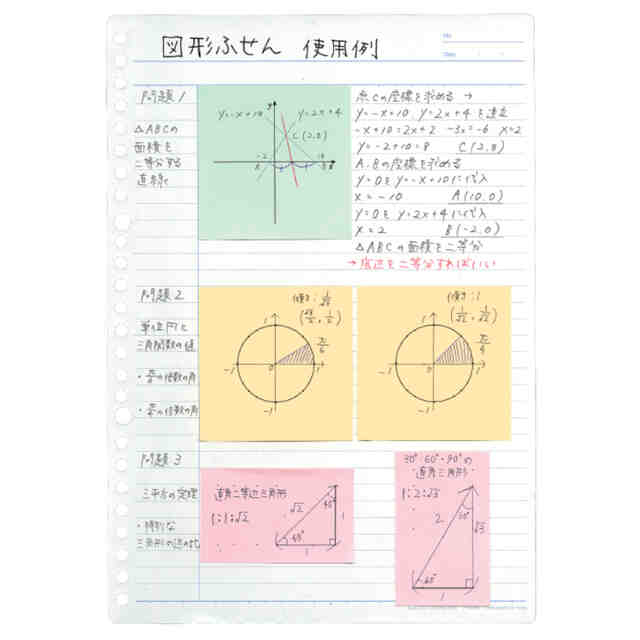 図形ふせん 使用例
No.
Date
問題1
△ABCの
面積を
二等分する
直線
y=-x+10
y=2x+4
y
C(2.8)
-2
10
A
B
x
点Cの座標を求める →
y=-x+10. y=2x+4を連立
-x+10=2x+2 -3x=-6 x=2
y=-2+10=8 C(2.8)
A.Bの座標を求める
y=0をy=-x+10に代入
x=-10 A(10.0)
y=0をy=2x+4に代入
x=2 B(-2.0)
△ABCの面積を二等分
→底辺を二等分すればいい
問題2
単位円と
三角関数の値
の倍数の角
の倍数の角
傾き:1/√3
(√3/2, 1/2)
π/6
1
-1
0
1
-1
傾き:1
(1/√2, 1/√2)
π/4
1
-1
0
1
-1
問題3
三平方の定理
・特別な
三角形の辺の比
直角二等辺三角形
1:1:√2
√2
45°
1
45°
1
30°60°90°の
直角三角形
1:2:√3
2
30°
√3
60°
1